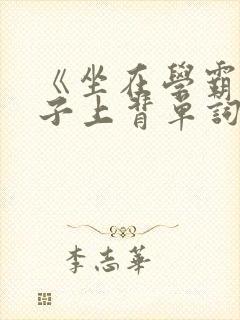 《坐在學霸
子上背單詞
李志華